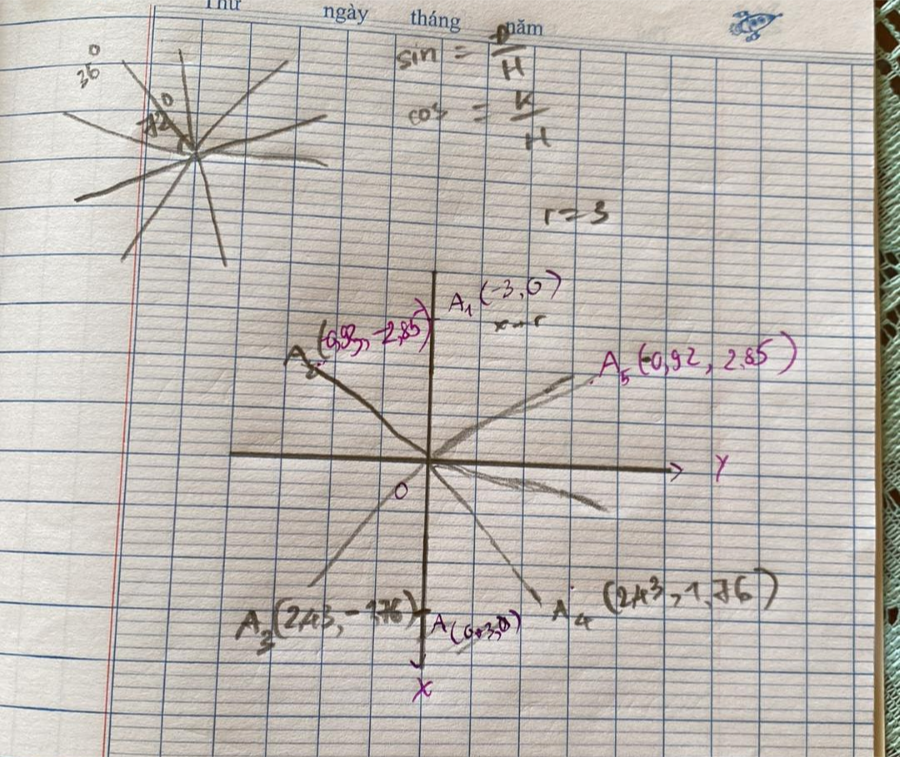 Thứ ngày tháng năm
36⁰
72⁰
sin = Đ/H
cos = K/H
r = 3
A₁ (-3, 0)
x = -r
A₂ (-0,92, -2,85)
A₅ (-0,92, 2,85)
Y
O
A₃ (2,43, -1,76)
A₄ (2,43, 1,76)
X